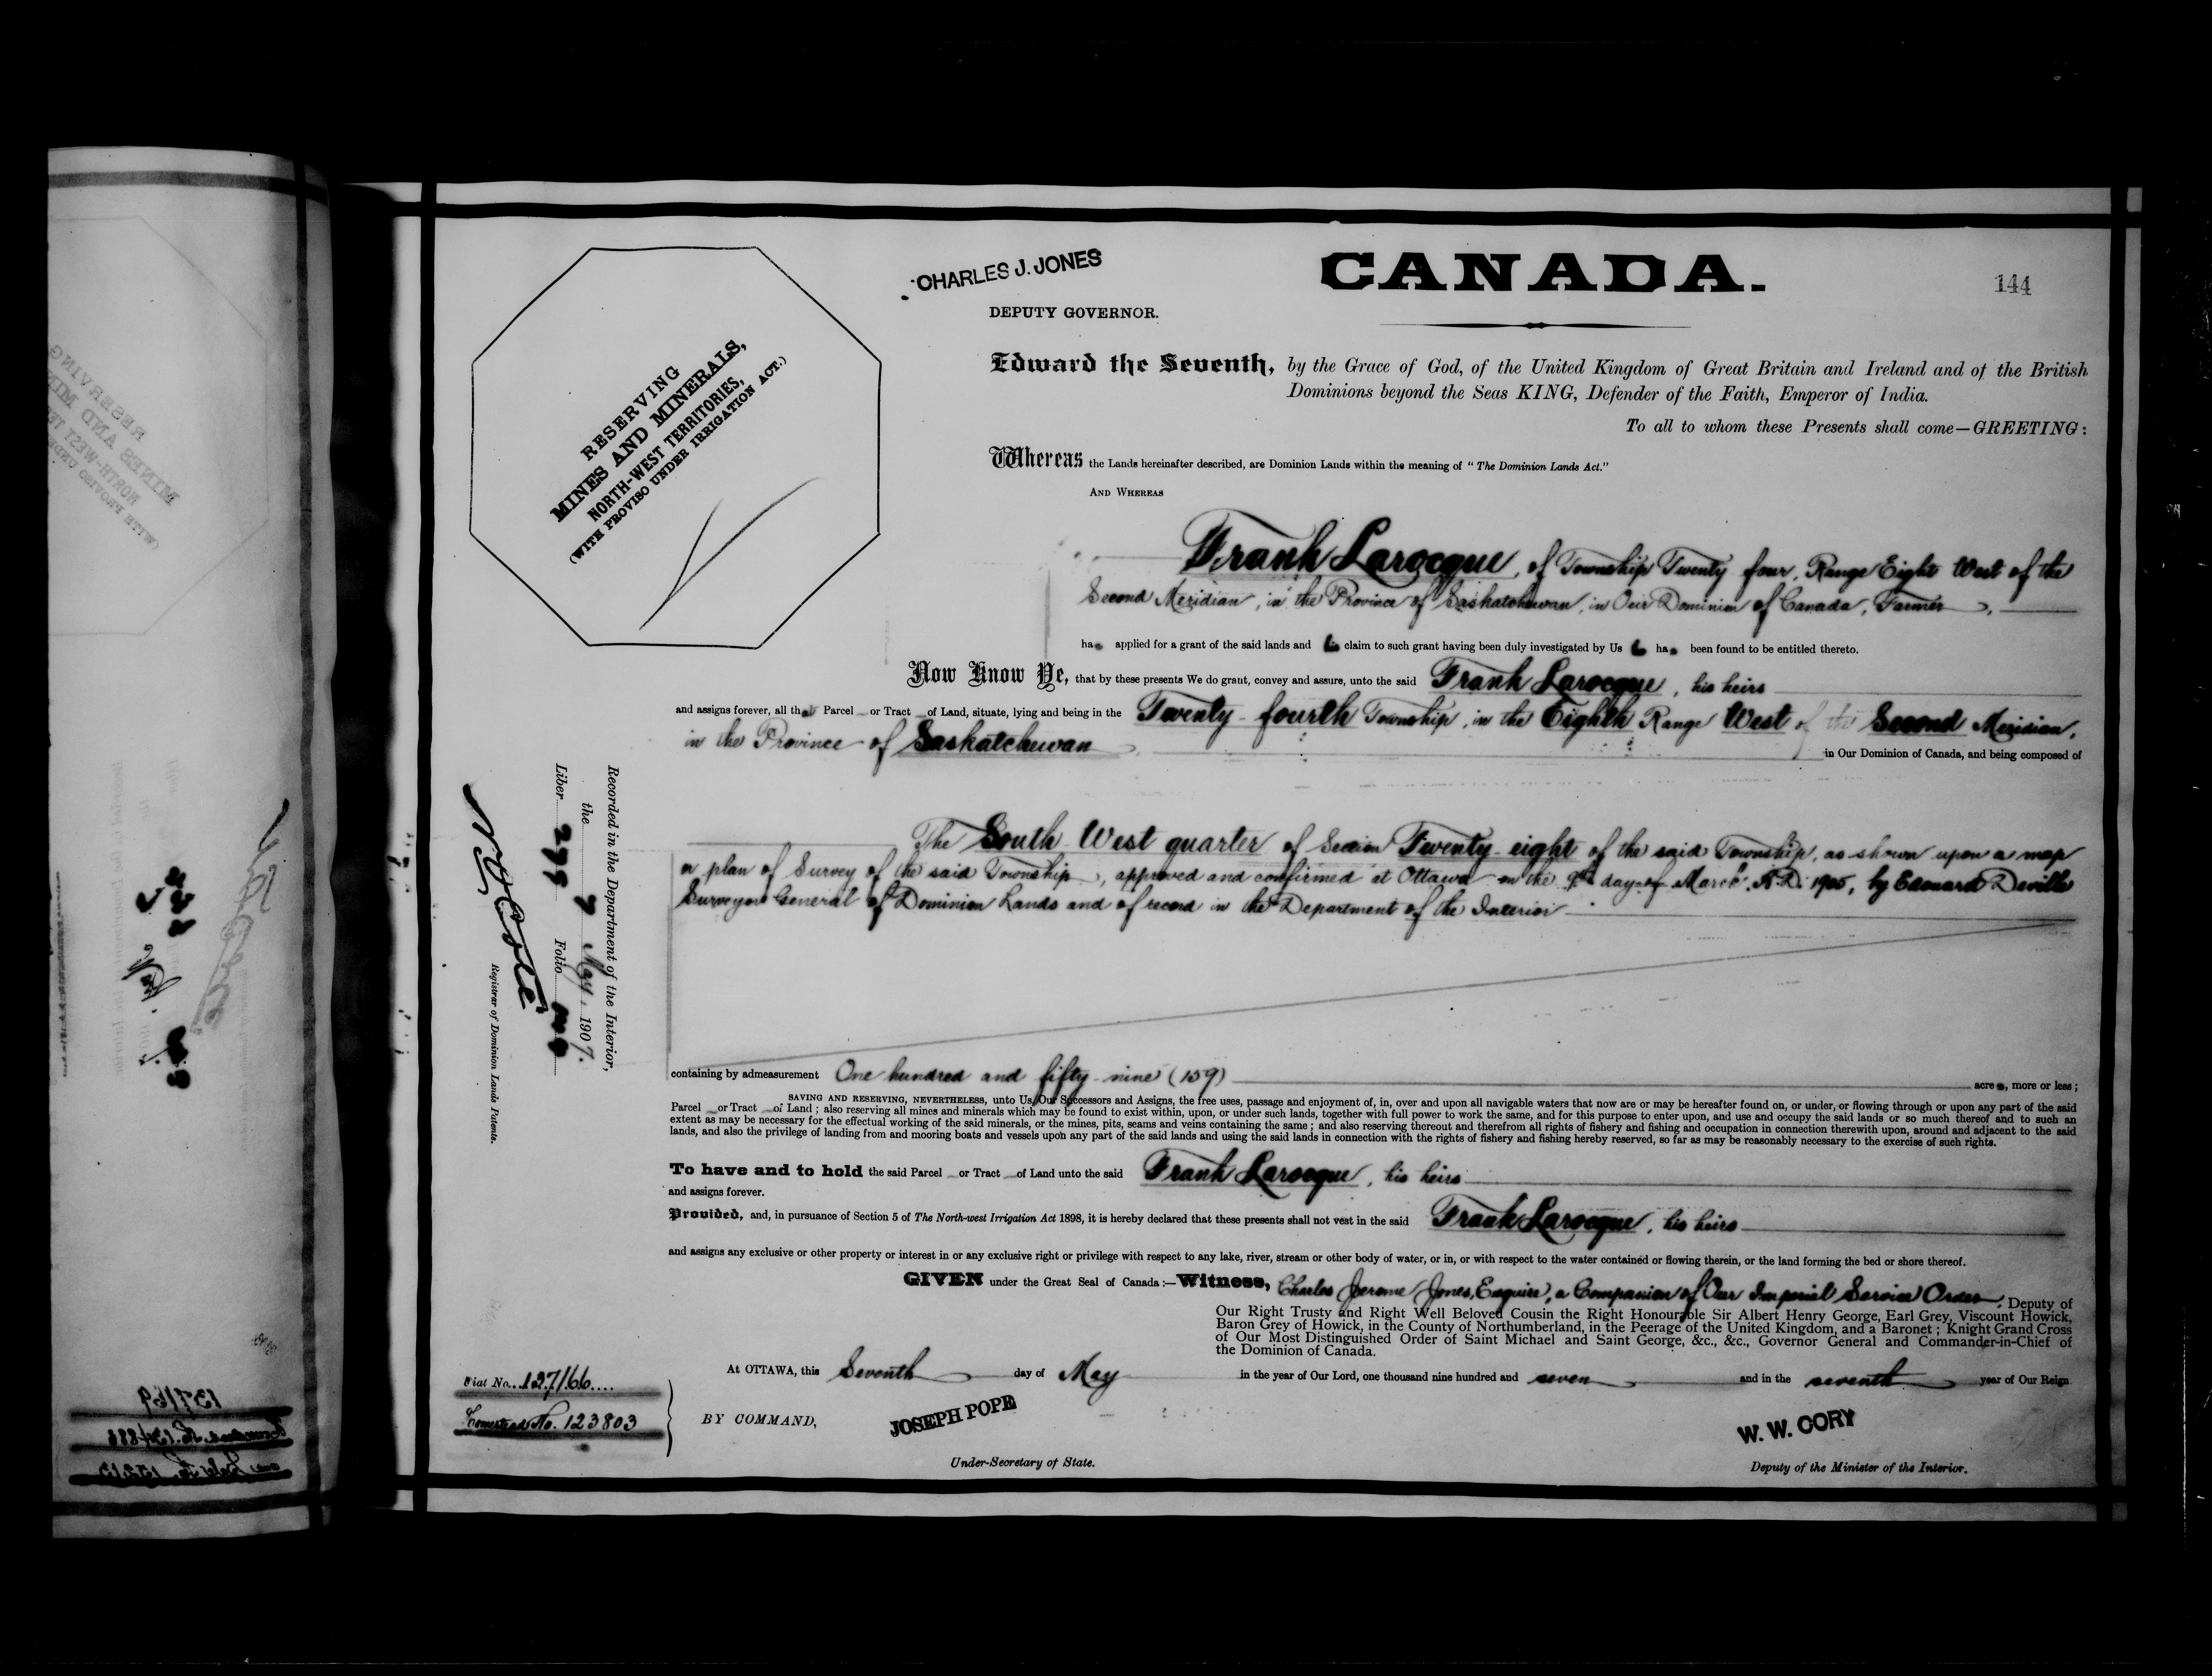 CHARLES J. JONES
CANADA.
144
DEPUTY GOVERNOR.
RESERVING
MINES AND MINERALS,
NORTH-WEST TERRITORIES,
(WITH PROVISO UNDER IRRIGATION ACT.)
Edward the Seventh, by the Grace of God, of the United Kingdom of Great Britain and Ireland and of the British
Dominions beyond the Seas KING, Defender of the Faith, Emperor of India.
To all to whom these Presents shall come—GREETING:
Whereas the Lands hereinafter described, are Dominion Lands within the meaning of "The Dominion Lands Act."
AND WHEREAS
Frank Larocque, of Township Twenty four, Range Eight West of the
Second Meridian, in the Province of Saskatchewan, in Our Dominion of Canada, Farmer,
has applied for a grant of the said lands and his claim to such grant having been duly investigated by Us he has been found to be entitled thereto.
Now Know Ye, that by these presents We do grant, convey and assure, unto the said Frank Larocque, his heirs
and assigns forever, all that Parcel or Tract of Land, situate, lying and being in the Twenty-fourth Township, in the Eighth Range West of the Second Meridian,
in the Province of Saskatchewan
in Our Dominion of Canada, and being composed of
The South West quarter of Section Twenty-eight of the said Township, as shown upon a map
or plan of Survey of the said Township, approved and confirmed at Ottawa on the 9th day of March A.D. 1905, by Edouard Deville
Surveyor General of Dominion Lands and of record in the Department of the Interior
Recorded in the Department of the Interior,
the 7 May, 1907.
Liber 299 Folio
Registrar of Dominion Lands Patents.
containing by admeasurement One hundred and fifty-nine (159) acres, more or less;
SAVING AND RESERVING, NEVERTHELESS, unto Us, Our Successors and Assigns, the free uses, passage and enjoyment of, in, over and upon all navigable waters that now are or may be hereafter found on, or under, or flowing through or upon any part of the said
Parcel or Tract of Land; also reserving all mines and minerals which may be found to exist within, upon, or under such lands, together with full power to work the same, and for this purpose to enter upon, and use and occupy the said lands or so much thereof and to such an
extent as may be necessary for the effectual working of the said minerals, or the mines, pits, seams and veins containing the same; and also reserving thereout and therefrom all rights of fishery and fishing and occupation in connection therewith upon, around and adjacent to the said
lands, and also the privilege of landing from and mooring boats and vessels upon any part of the said lands and using the said lands in connection with the rights of fishery and fishing hereby reserved, so far as may be reasonably necessary to the exercise of such rights.
To have and to hold the said Parcel or Tract of Land unto the said Frank Larocque, his heirs
and assigns forever.
Provided, and, in pursuance of Section 5 of The North-west Irrigation Act 1898, it is hereby declared that these presents shall not vest in the said Frank Larocque, his heirs
and assigns any exclusive or other property or interest in or any exclusive right or privilege with respect to any lake, river, stream or other body of water, or in, or with respect to the water contained or flowing therein, or the land forming the bed or shore thereof.
GIVEN under the Great Seal of Canada:—Witness, Charles Jerome Jones, Esquire, a Companion of Our Imperial Service Order, Deputy of
Our Right Trusty and Right Well Beloved Cousin the Right Honourable Sir Albert Henry George, Earl Grey, Viscount Howick,
Baron Grey of Howick, in the County of Northumberland, in the Peerage of the United Kingdom, and a Baronet; Knight Grand Cross
of Our Most Distinguished Order of Saint Michael and Saint George, &c., &c., Governor General and Commander-in-Chief of
the Dominion of Canada.
At OTTAWA, this Seventh day of May in the year of Our Lord, one thousand nine hundred and seven and in the seventh year of Our Reign
Fiat No. 127166
Homestead No. 123803
BY COMMAND,
JOSEPH POPE
W. W. CORY
Under-Secretary of State.
Deputy of the Minister of the Interior.